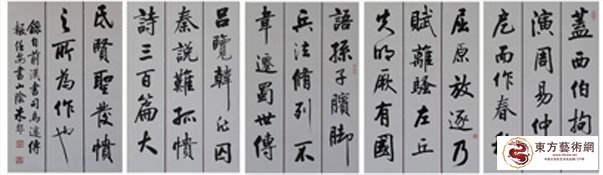 蓋西伯拘
演周易仲
厄而作春
屈原放逐乃
賦離騷左丘
失明厥有國
語孫子臏脚
兵法脩列不
韋遷蜀世傳
呂覽韓非囚
秦說難孤憤
詩三百篇大
氐賢聖發憤
之所為作也
錄自前漢書司馬遷傳
報任安書山陰
東方藝術網